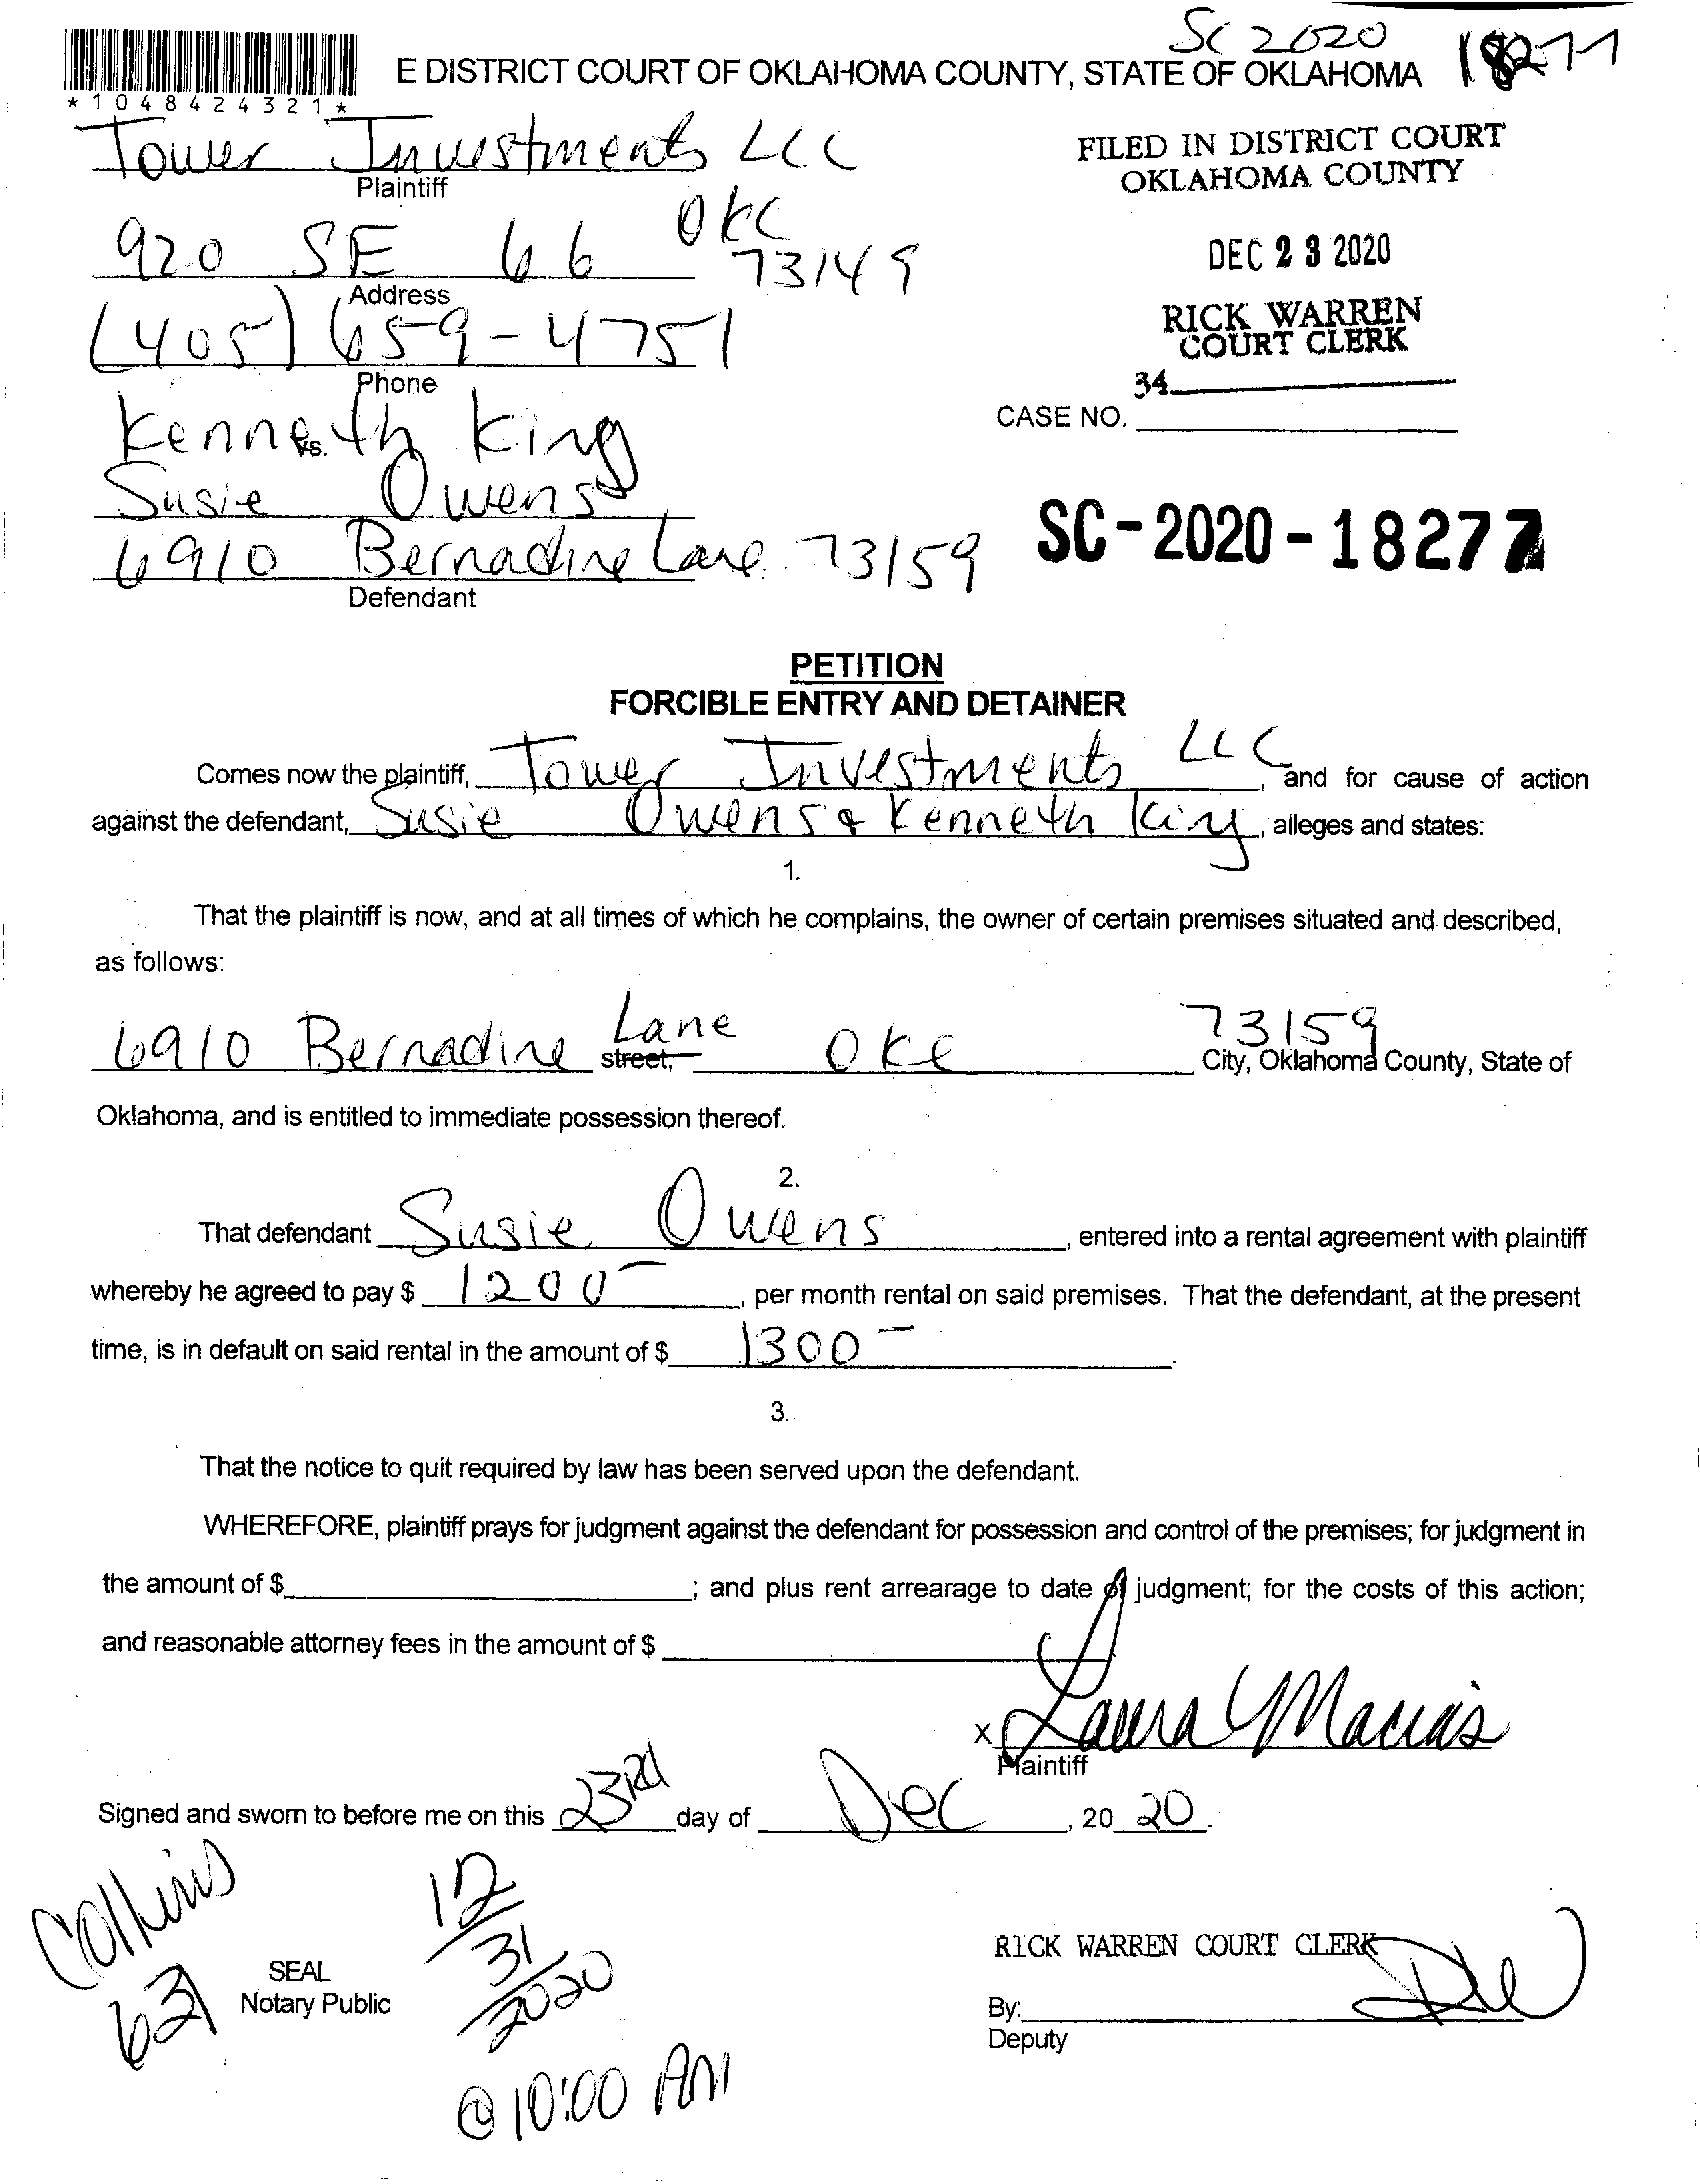 SC 2020 18277
E DISTRICT COURT OF OKLAHOMA COUNTY, STATE OF OKLAHOMA
*1048424321*
Tower Investments LLC
Plaintiff
FILED IN DISTRICT COURT
OKLAHOMA COUNTY
920 SE 66 OKC 73149
Address
DEC 23 2020
(405) 659-4751
Phone
RICK WARREN
COURT CLERK
34
Kenneth King
vs.
CASE NO.
Susie Owens
6910 Bernadine Lane 73159
Defendant
SC-2020-18277
PETITION
FORCIBLE ENTRY AND DETAINER
Comes now the plaintiff, Tower Investments LLC, and for cause of action
against the defendant, Susie Owens & Kenneth King, alleges and states:
1.
That the plaintiff is now, and at all times of which he complains, the owner of certain premises situated and described,
as follows:
6910 Bernadine Lane street, OKC 73159 City, Oklahoma County, State of
Oklahoma, and is entitled to immediate possession thereof.
2.
That defendant Susie Owens, entered into a rental agreement with plaintiff
whereby he agreed to pay $ 1200-, per month rental on said premises. That the defendant, at the present
time, is in default on said rental in the amount of $ 1300-.
3.
That the notice to quit required by law has been served upon the defendant.
WHEREFORE, plaintiff prays for judgment against the defendant for possession and control of the premises; for judgment in
the amount of $ ; and plus rent arrearage to date of judgment; for the costs of this action;
and reasonable attorney fees in the amount of $
x Laura Macias
Plaintiff
Signed and sworn to before me on this 23rd day of Dec, 20 20.
Collins
621
12/31/2020
@ 10:00 AM
SEAL
Notary Public
RICK WARREN COURT CLERK
By:
Deputy